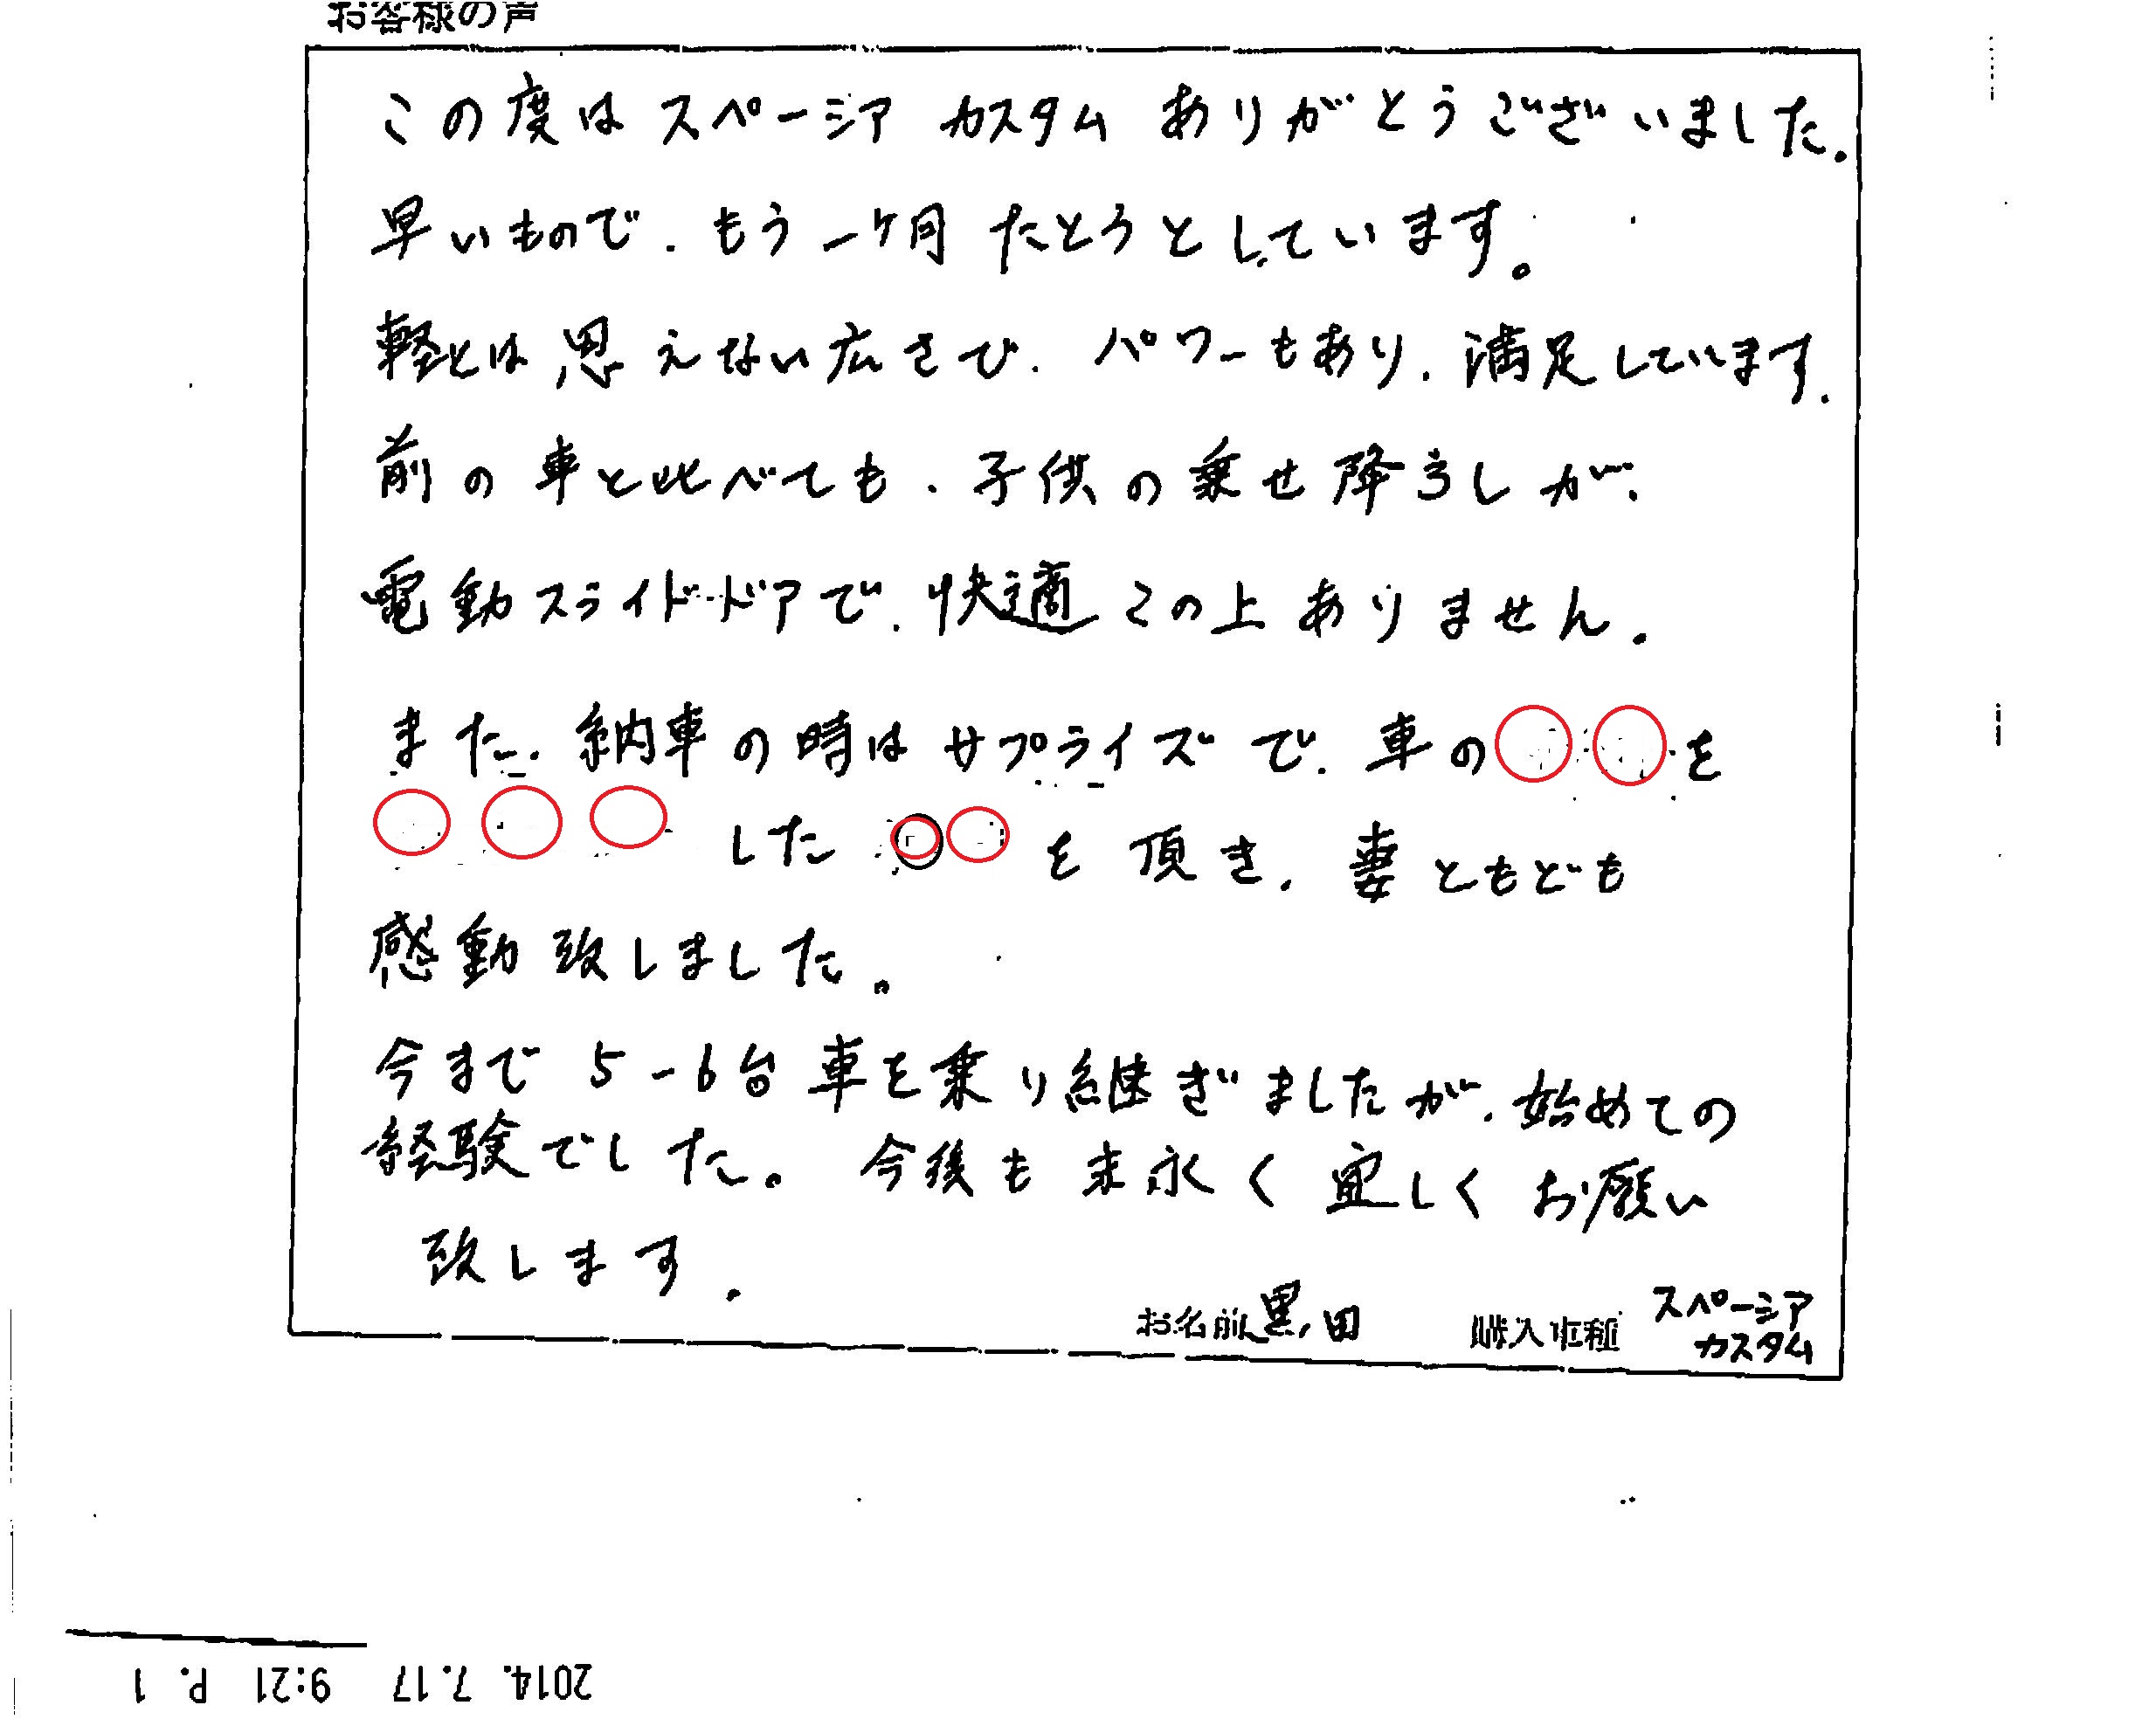 お客様の声
この度はスペーシア カスタム ありがとうございました.
早いもので. もう一ヶ月 たとうとしています。
軽とは思えない広さで. パワーもあり. 満足しています.
前の車と比べても. 子供の乗せ降ろしが.
電動スライドドアで. 快適この上ありません.
また. 納車の時はサプライズで. 車の○○を
○○○した○○を頂き. 妻ともども
感動致しました。
今まで5-6台車を乗り継ぎましたが. 始めての
経験でした。 今後も末永く宜しくお願い
致します.
お名前 黒田 購入車種 スペーシア
カスタム
2014. 7.17 9:21 P. 1